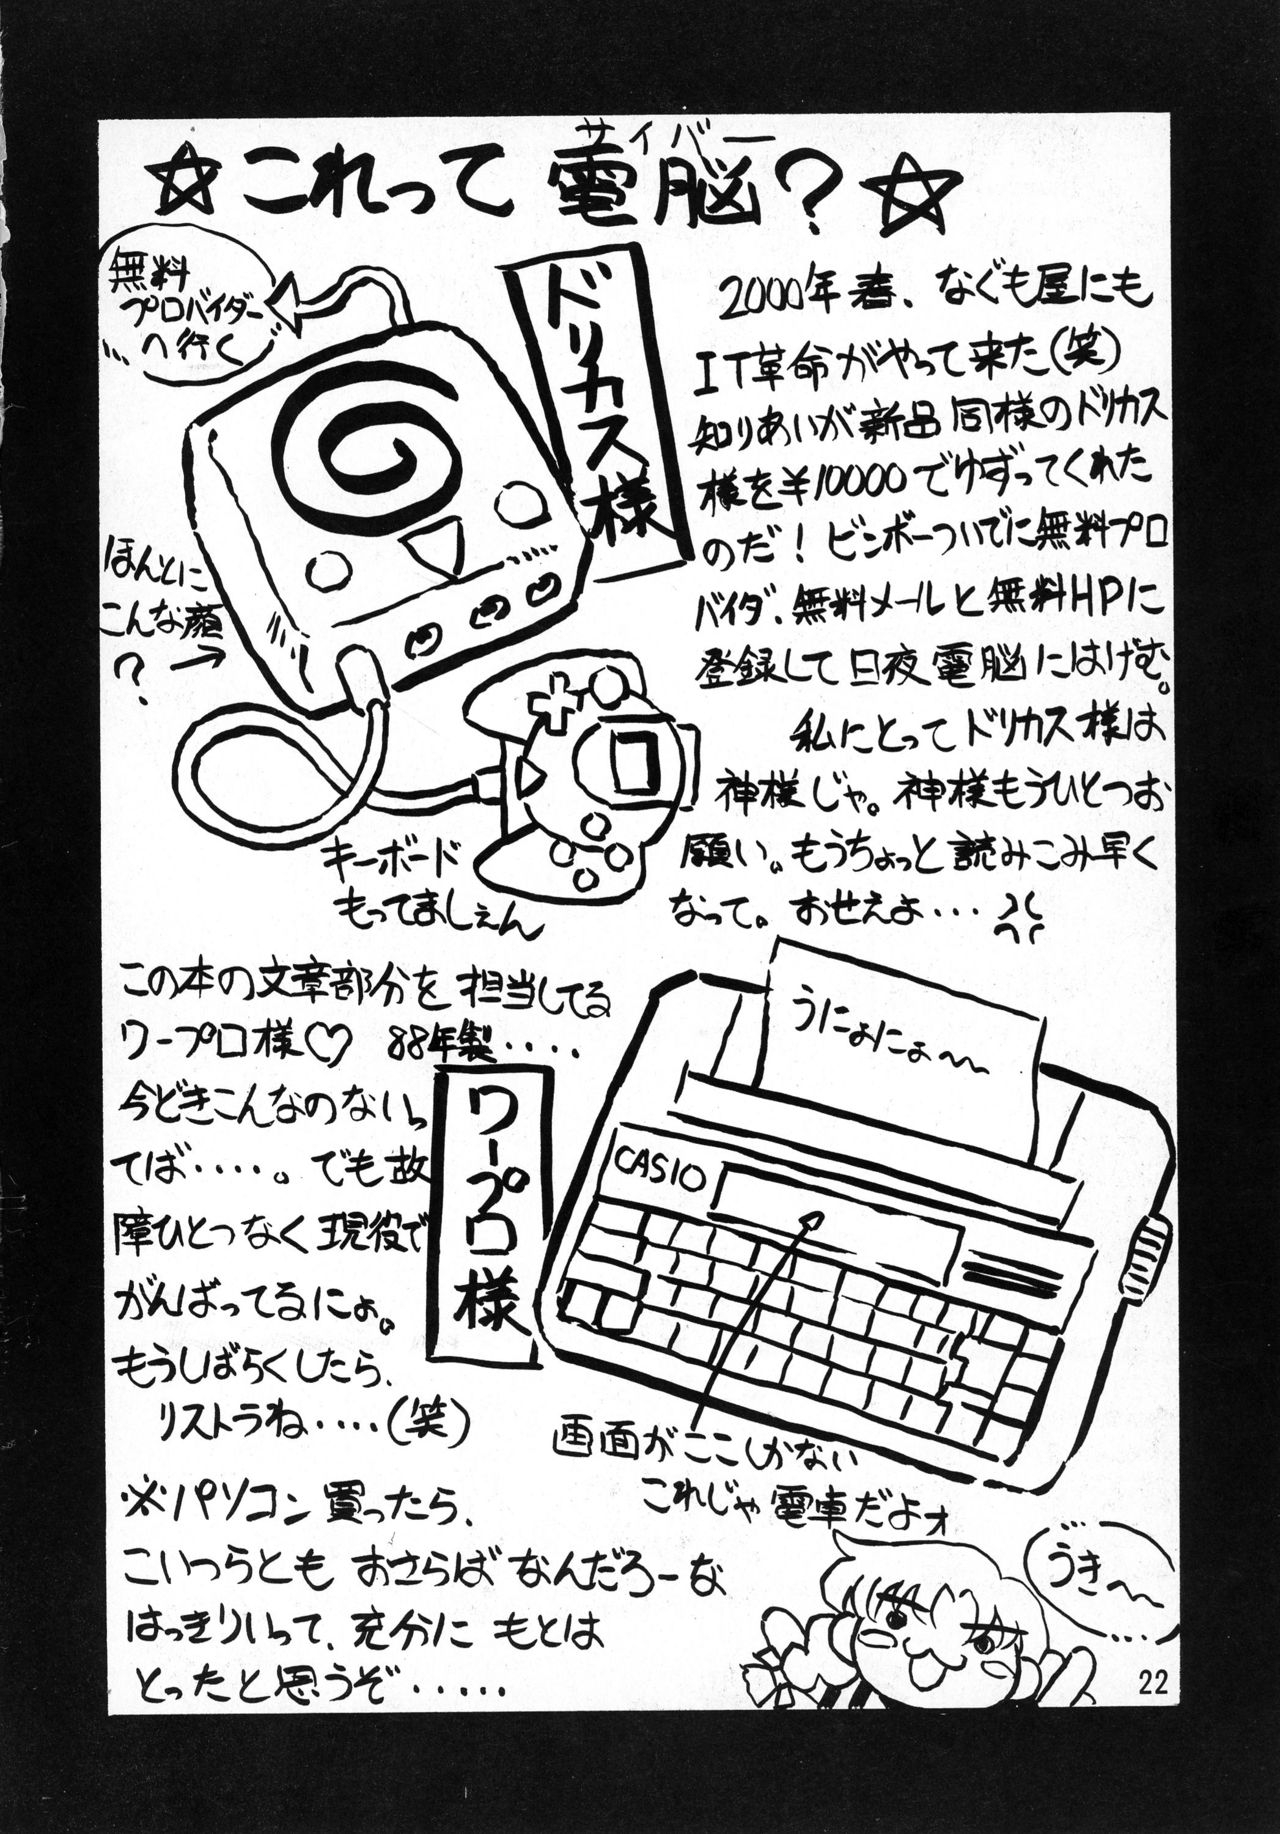 ☆これって電脳?☆
サイバー
無料
プロバイダー
へ行く
ドリカス様
ほんとに
こんな顔
? →
キーボード
もってましぇん
2000年春、なぐも屋にも
IT革命がやって来た(笑)
知りあいが新品同様のドリカス
様を¥10000でゆずってくれた
のだ!ビンボーついでに無料プロ
バイダ、無料メールと無料HPに
登録して日夜電脳にはげむ。
私にとってドリカス様は
神様じゃ。神様もうひとつお
願い。もうちょっと読みこみ早く
なって。おせえよ・・・
この本の文章部分を担当してる
ワープロ様♡ 88年製・・・・
今どきこんなのないっ
てば・・・・。でも故
障ひとつなく現役で
がんばってるにょ。
もうしばらくしたら、
リストラね・・・・(笑)
ワープロ様
うにょにょ〜
CASIO
画面がここしかない
これじゃ電車だよォ
※パソコン買ったら、
こいつらともおさらばなんだろーな
はっきりいって、充分にもとは
とったと思うぞ・・・・・
うき〜
22